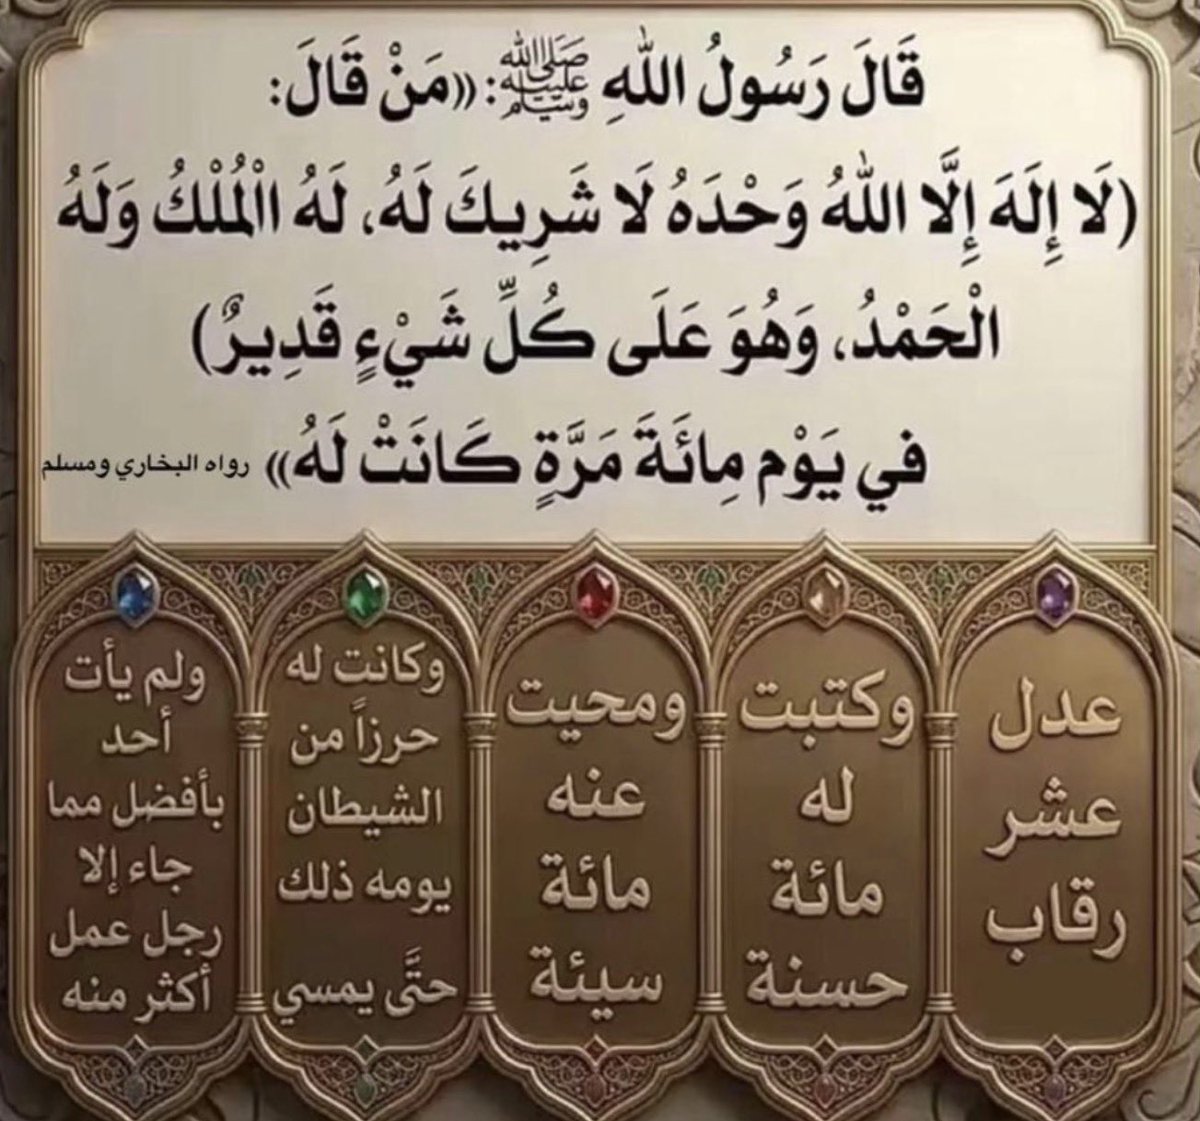 قَالَ رَسُولُ اللهِ ﷺ: «مَنْ قَالَ:
(لَا إِلَهَ إِلَّا اللهُ وَحْدَهُ لَا شَرِيكَ لَهُ، لَهُ الْمُلْكُ وَلَهُ
الْحَمْدُ، وَهُوَ عَلَى كُلِّ شَيْءٍ قَدِيرٌ)
في يَوْم مِائَةَ مَرَّةٍ كَانَتْ لَهُ» رواه البخاري ومسلم
عدل
عشر
رقاب
وكتبت
له
مائة
حسنة
ومحيت
عنه
مائة
سيئة
وكانت له
حرزاً من
الشيطان
يومه ذلك
حتَّى يمسي
ولم يأت
أحد
بأفضل مما
جاء إلا
رجل عمل
أكثر منه